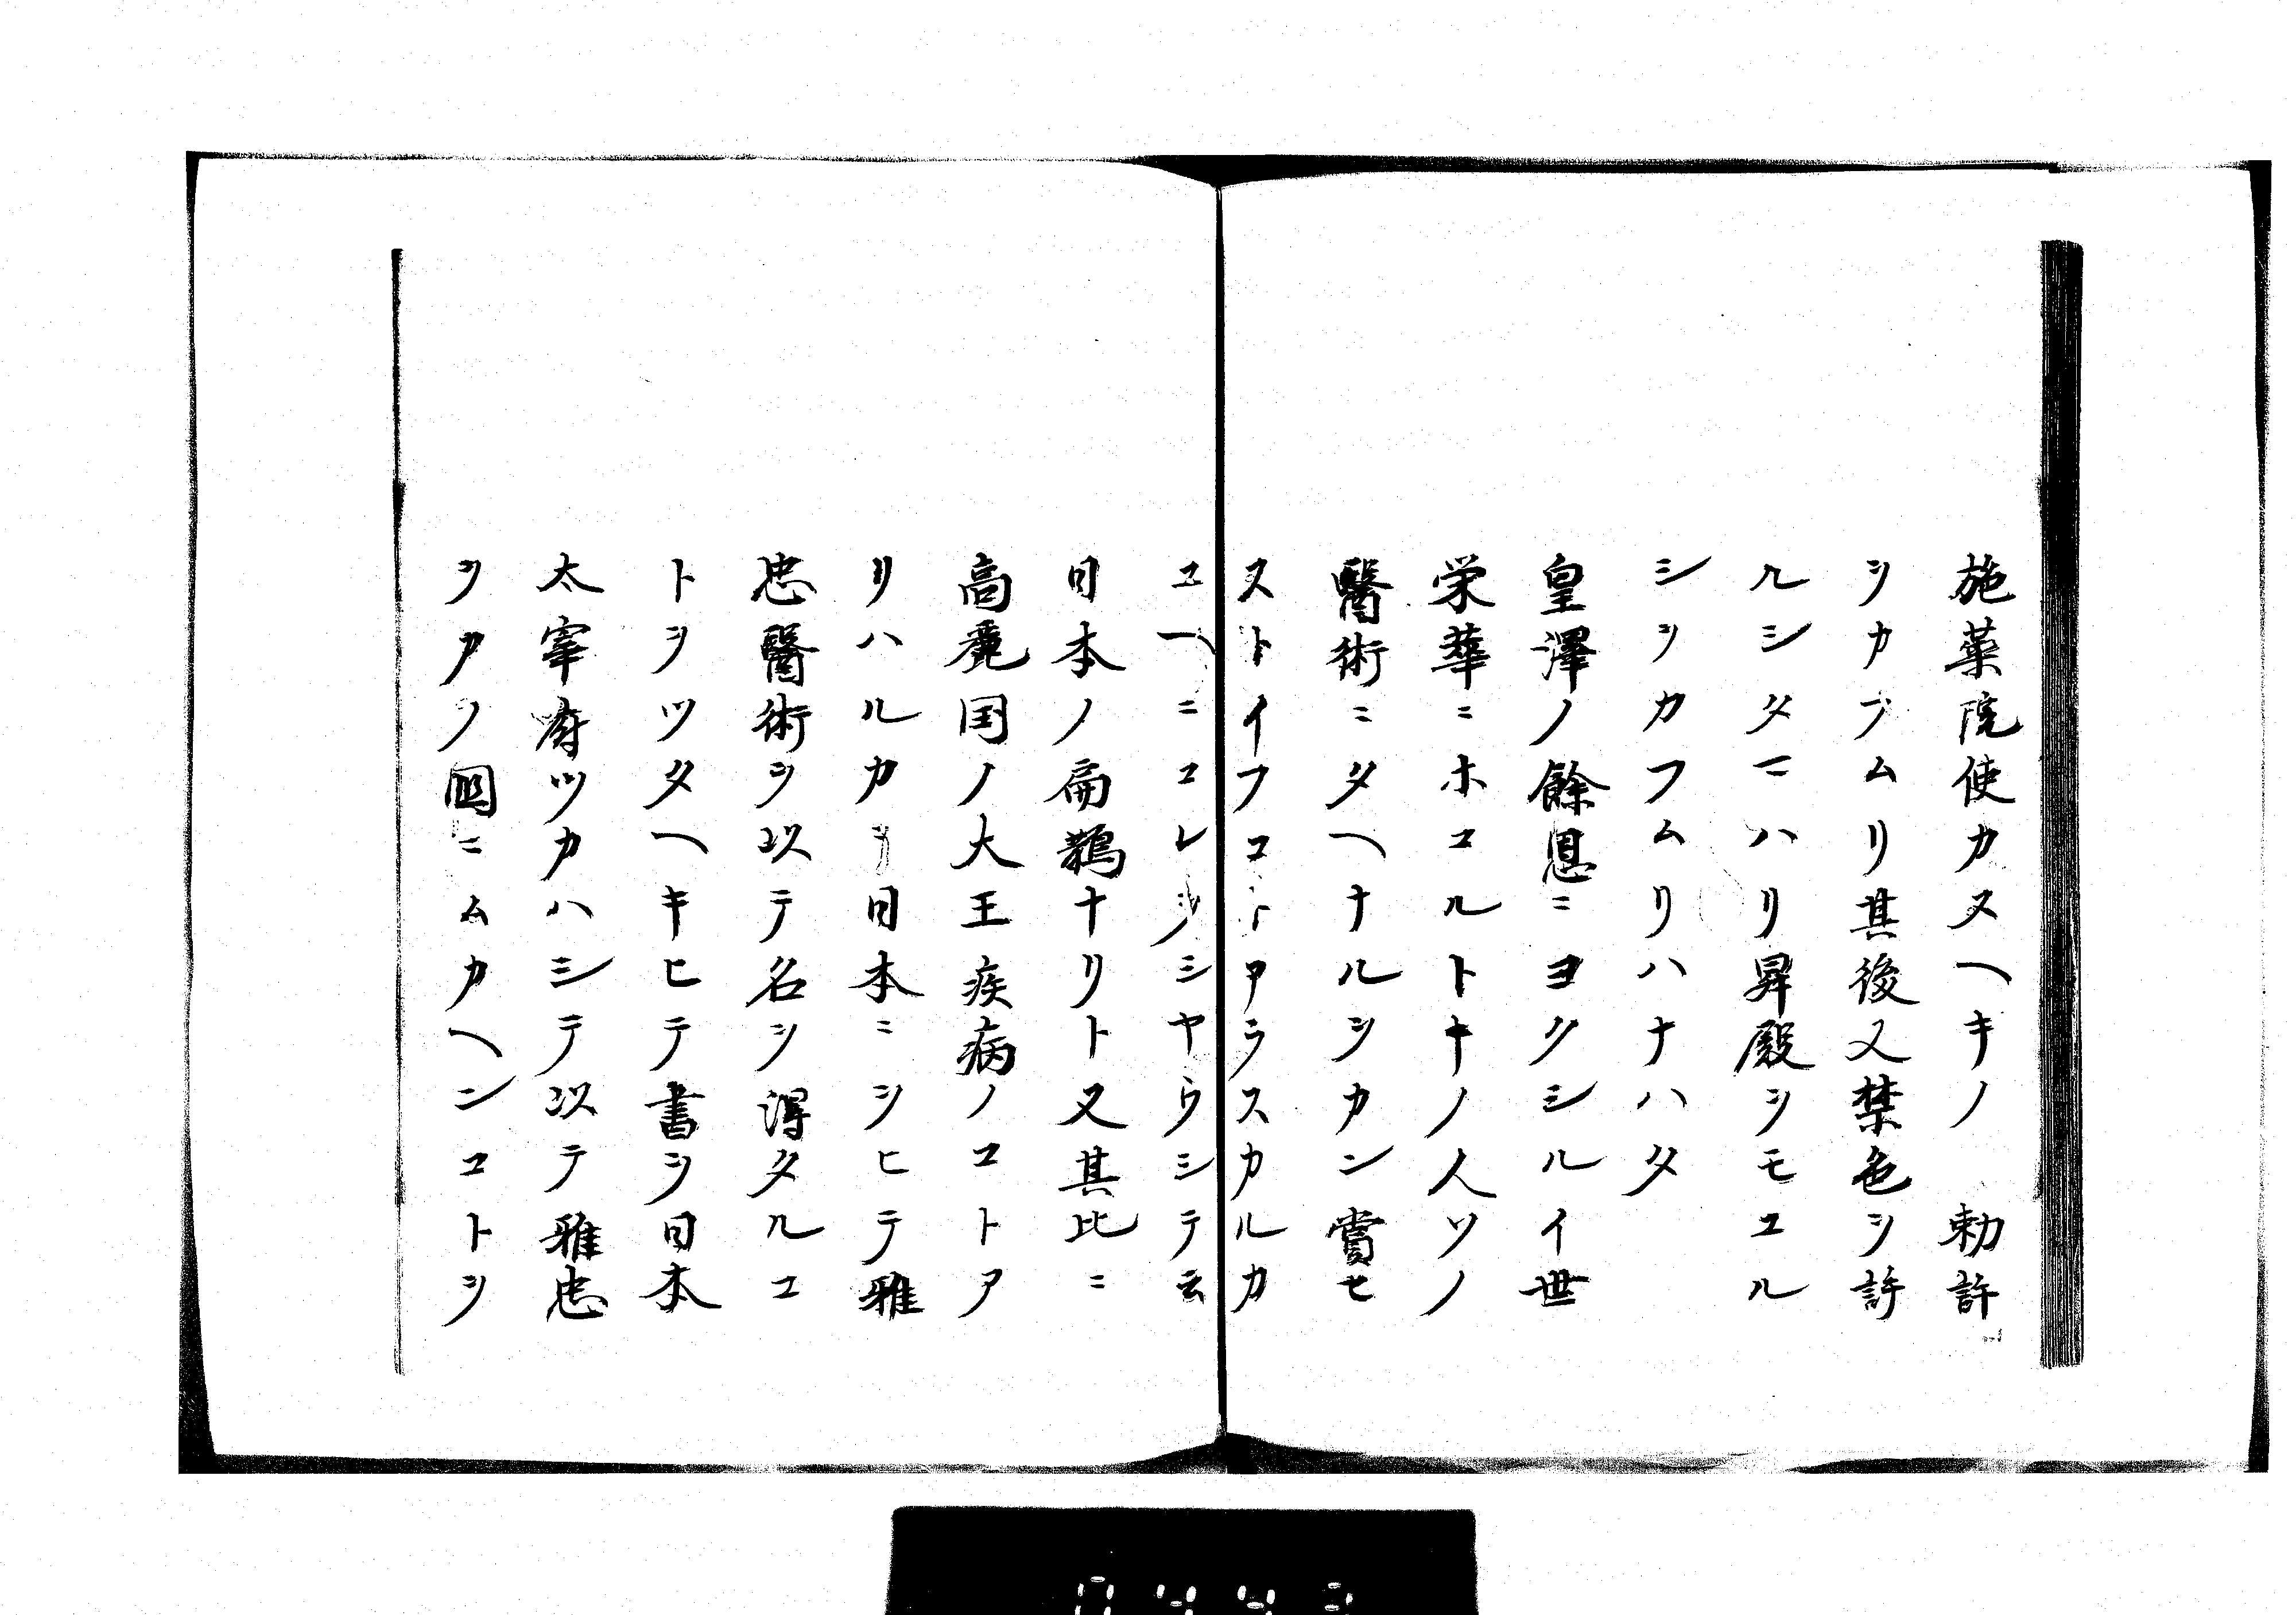 施薬院使カヌヘキノ　勅許
ヲカフムリ其後又禁色ヲ許
ルシタマハリ昇殿ヲモユル
シヲカフムリハナハタ
皇澤ノ餘恩ニヨクシルイ世
栄華ニホコルトキノ人ソノ
醫術ニタヘナルヲカン賞セ
ストイフコトアラスカルカ
ユヘニコレヲシヤウシテ云
日本ノ扁鵲ナリト又其比ニ
高麗国ノ大王疾病ノコトア
リハルカヲ日本ニヲヒテ雅
忠醫術ヲ以テ名ヲ得タルコ
トヲツタヘキヒテ書ヲ日本
太宰府ツカハシテ以テ雅忠
ヲアノ國ニムカヘンコトヲ
0443